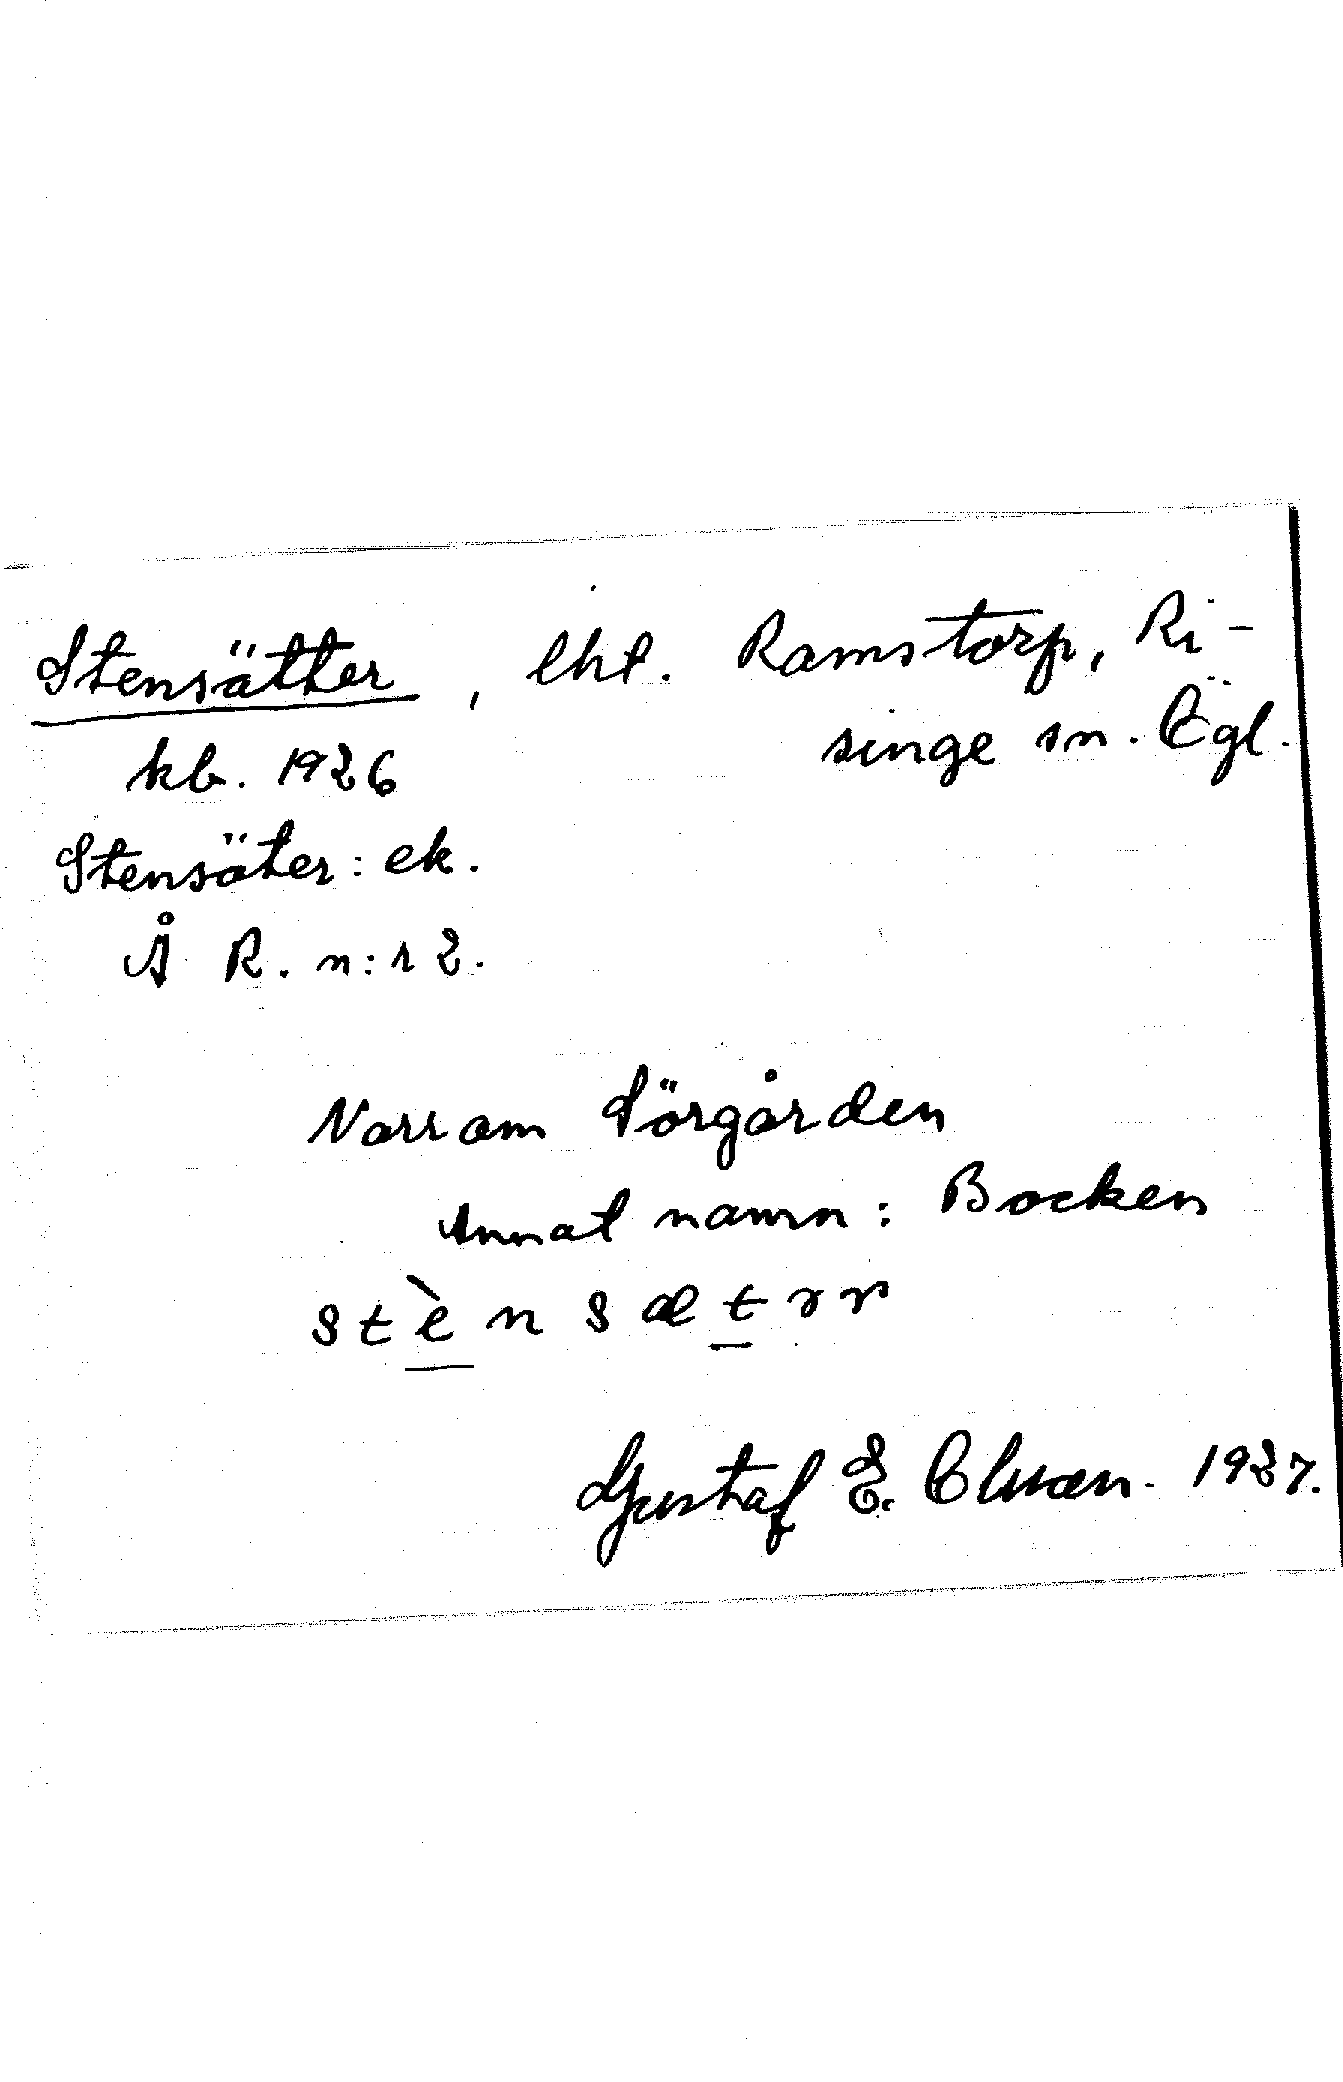 Stensätter, lht. Ramstorp, Ri-
singe sn. Ögl.
kb. 1926
Stensäter: ek.
Å R. n:r 2.
Norr om Sörgården
Annat namn: Bocken
Gustaf E. 1937.